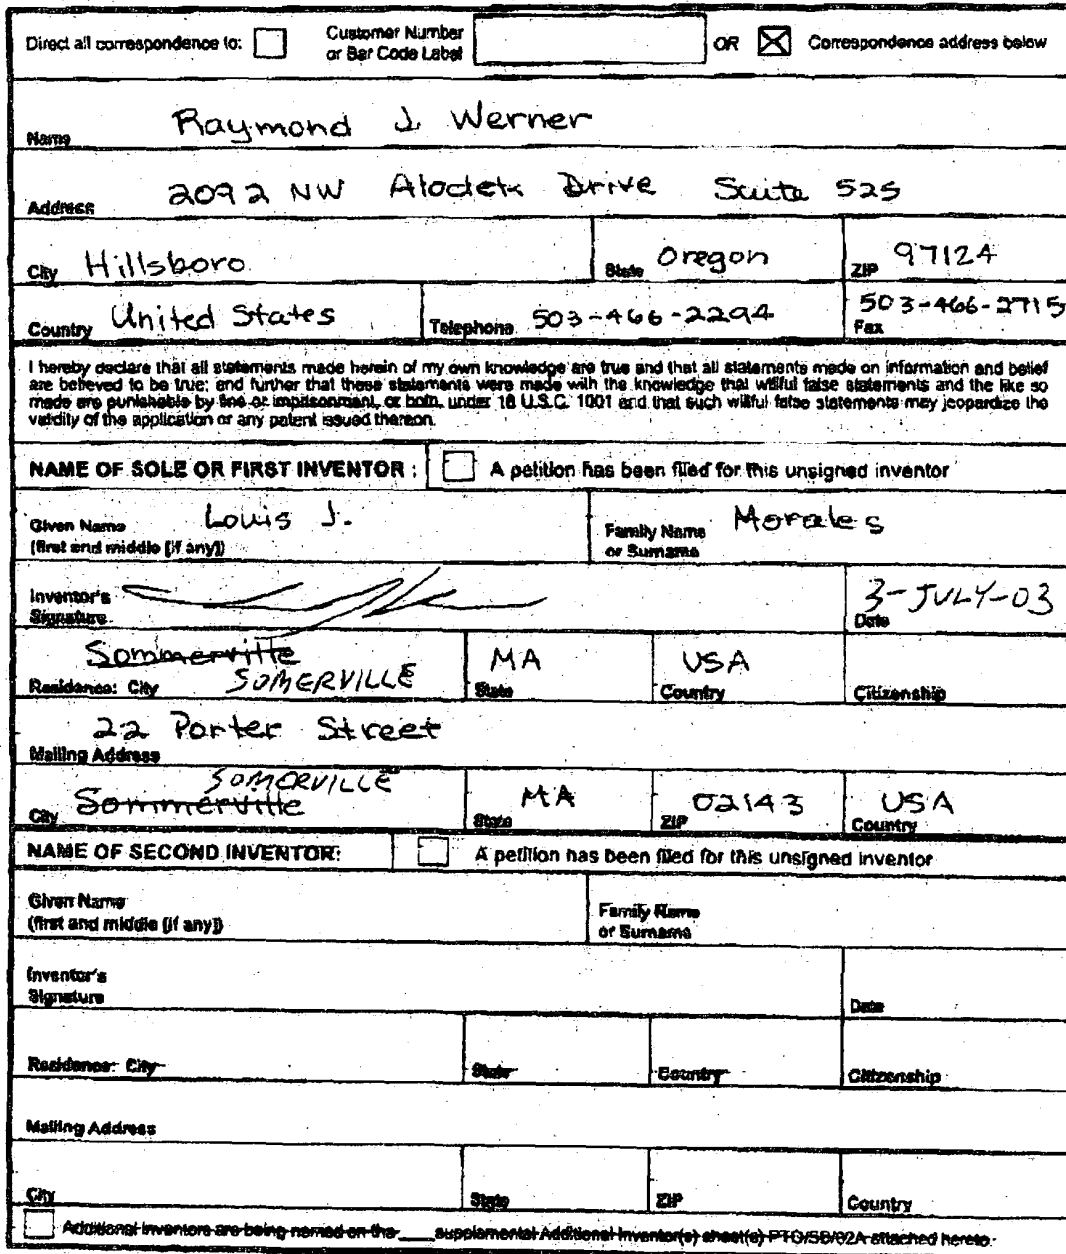 Direct all correspondence to: Customer Number or Bar Code Label OR Correspondence address below
Name Raymond J. Werner
Address 2092 NW Aloclek Drive Suite 525
City Hillsboro State Oregon ZIP 97124
Country United States Telephone 503-466-2294 Fax 503-466-2715
I hereby declare that all statements made herein of my own knowledge are true and that all statements made on information and belief
are believed to be true; and further that these statements were made with the knowledge that willful false statements and the like so
made are punishable by fine or imprisonment, or both, under 18 U.S.C. 1001 and that such willful false statements may jeopardize the
validity of the application or any patent issued thereon.
NAME OF SOLE OR FIRST INVENTOR : A petition has been filed for this unsigned inventor
Given Name Louis J. Family Name Morales
(first and middle [if any]) or Surname
Inventor's 3-JULY-03
Signature Date
Sommerville MA USA
Residence: City SOMERVILLE State Country Citizenship
22 Porter Street
Mailing Address
SOMERVILLE
City Sommerville State MA ZIP 02143 Country USA
NAME OF SECOND INVENTOR: A petition has been filed for this unsigned inventor
Given Name Family Name
(first and middle [if any]) or Surname
Inventor's
Signature Date
Residence: City State Country Citizenship
Mailing Address
City State ZIP Country
Additional inventors are being named on the ____ supplemental Additional Inventor(s) sheet(s) PTO/SB/02A attached hereto.